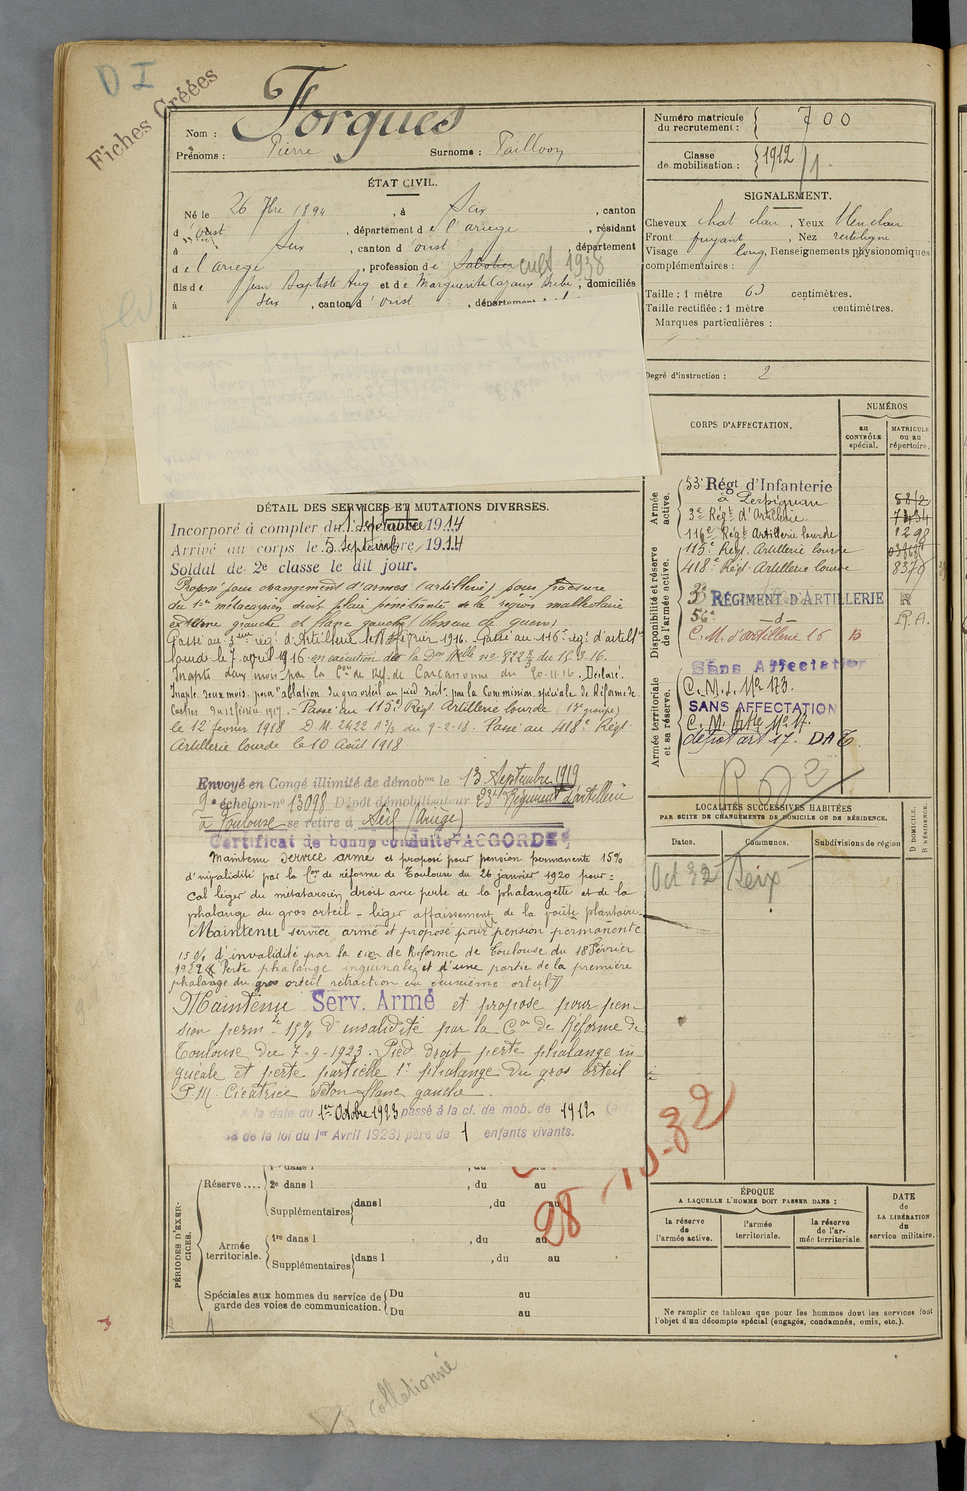 D I
Fiches Créées
Nom : Forgues
Prénoms : Pierre Surnoms : Taillou
ÉTAT CIVIL.
Né le 26 7bre 1894, à Seix, canton
d'oust, département de l'ariege, résidant
à Seix, canton d'oust, département
de l'ariege, profession de Sabotier cult 1938
fils de Jean Baptiste Aug et de Marguerite Cazaux, domiciliés
à Seix, canton d'oust, département
Numéro matricule du recrutement : 700
Classe de mobilisation : 1912 / 1
SIGNALEMENT.
Cheveux chat clair, Yeux bleu clair
Front fuyant, Nez rectiligne
Visage long, Renseignements physionomiques
complémentaires :
Taille : 1 mètre 63 centimètres.
Taille rectifiée : 1 mètre centimètres.
Marques particulières :
Degré d'instruction : 2
CORPS D'AFFECTATION.
NUMÉROS
au CONTRÔLE spécial.
MATRICULE ou au répertoire.
Armée active.
53e Régt d'Infanterie
à Perpignan 5812
3e Régt d'Artillerie 7434
116e Régt Artillerie lourde 1298
Disponibilité et réserve de l'armée active.
115e Régt. Artillerie lourde
418e Régt Artillerie lourde 8370
3e RÉGIMENT D'ARTILLERIE R
56e -d- R.A.
C. M. d'artillerie 16
Armée territoriale et sa réserve.
Sans Affectation
C. M. I. No 173.
SANS AFFECTATION
C. M. Artie No 17.
dépot art 17. DAT
LOCALITÉS SUCCESSIVES HABITÉES
PAR SUITE DE CHANGEMENTS DE DOMICILE OU DE RÉSIDENCE.
D DOMICILE. R RÉSIDENCE.
Dates. Communes. Subdivisions de région
Oct 32 Seix
DÉTAIL DES SERVICES ET MUTATIONS DIVERSES.
Incorporé à compter du 1 Septembre 1914
Arrivé au corps le 5 Septembre, 1914
Soldat de 2e classe le dit jour.
Proposé pour changement d'armes (artillerie) pour fracture
du 1er métacarpien droit plaie pénétrante de la région malléolaire
externe gauche et flanc gauche, blessure de guerre,
Passé au 3ème rég. d'Artillerie le Février 1916. Passé au 116e rég. d'artillie
lourde le 7 avril 1916 en exécution de la Don Mlle no 8223/3 du 15.3.16.
Inapte deux mois par la Con de Réf. de Carcassonne du 20-11-16. Déclaré
Inapte deux mois pour "ablation du gros orteil au pied droit" par la Commission spéciale de Réforme de
Castres du 12 février 1917. - Passé au 115e Régt Artillerie lourde (13e groupe)
le 12 février 1918 D.M. 2422 A 3/3 du 9-2-18. Passé au 418e Régt
Artillerie lourde le 10 Août 1918.
Envoyé en Congé illimité de démobon le 13 Septembre 1919
9e échelon no 13098 Dépôt démobilisateur 23e Régiment d'artillerie
à Toulouse se retire à Seix (Ariège)
Certificat de bonne conduite "ACCORDÉ"
Maintenu service armé et proposé pour pension permanente 15%
d'invalidité par la Con de réforme de Toulouse du 26 janvier 1920 pour :
Cal léger du métatarsien droit avec perte de la phalangette et de la
phalange du gros orteil - léger affaissement de la voûte plantaire.
Maintenu service armé et proposé pour pension permanente
15 % d'invalidité par la con de Réforme de Toulouse du 18 Février
1922 Perte phalange unguéale et d'une partie de la première
phalange du gros orteil rétraction du deuxième orteil
Maintenu Serv. Armé et proposé pour pen-
sion permte 15% d'invalidité par la Con de Réforme de
Toulouse du 7-9-1923. Pied droit perte phalange un-
guéale et perte partielle 1e phalange du gros orteil
P.M. Cicatrice séton flanc gauche.
A la date du 1er Octobre 1923 passé à la cl. de mob. de 1912
de la loi du 1er Avril 1923) père de 1 enfants vivants.
28-10-32
PÉRIODES D'EXERCICES.
Réserve....
1re dans l , du au
2e dans l , du au
Supplémentaires dans l , du au
Armée territoriale.
1re dans l , du au
Supplémentaires dans l , du au
Spéciales aux hommes du service de garde des voies de communication.
Du au
Du au
ÉPOQUE
A LAQUELLE L'HOMME DOIT PASSER DANS :
la réserve de l'armée active.
l'armée territoriale.
la réserve de l'armée territoriale.
DATE de LA LIBÉRATION du service militaire.
Ne remplir ce tableau que pour les hommes dont les services font
l'objet d'un décompte spécial (engagés, condamnés, omis, etc.).
collationné